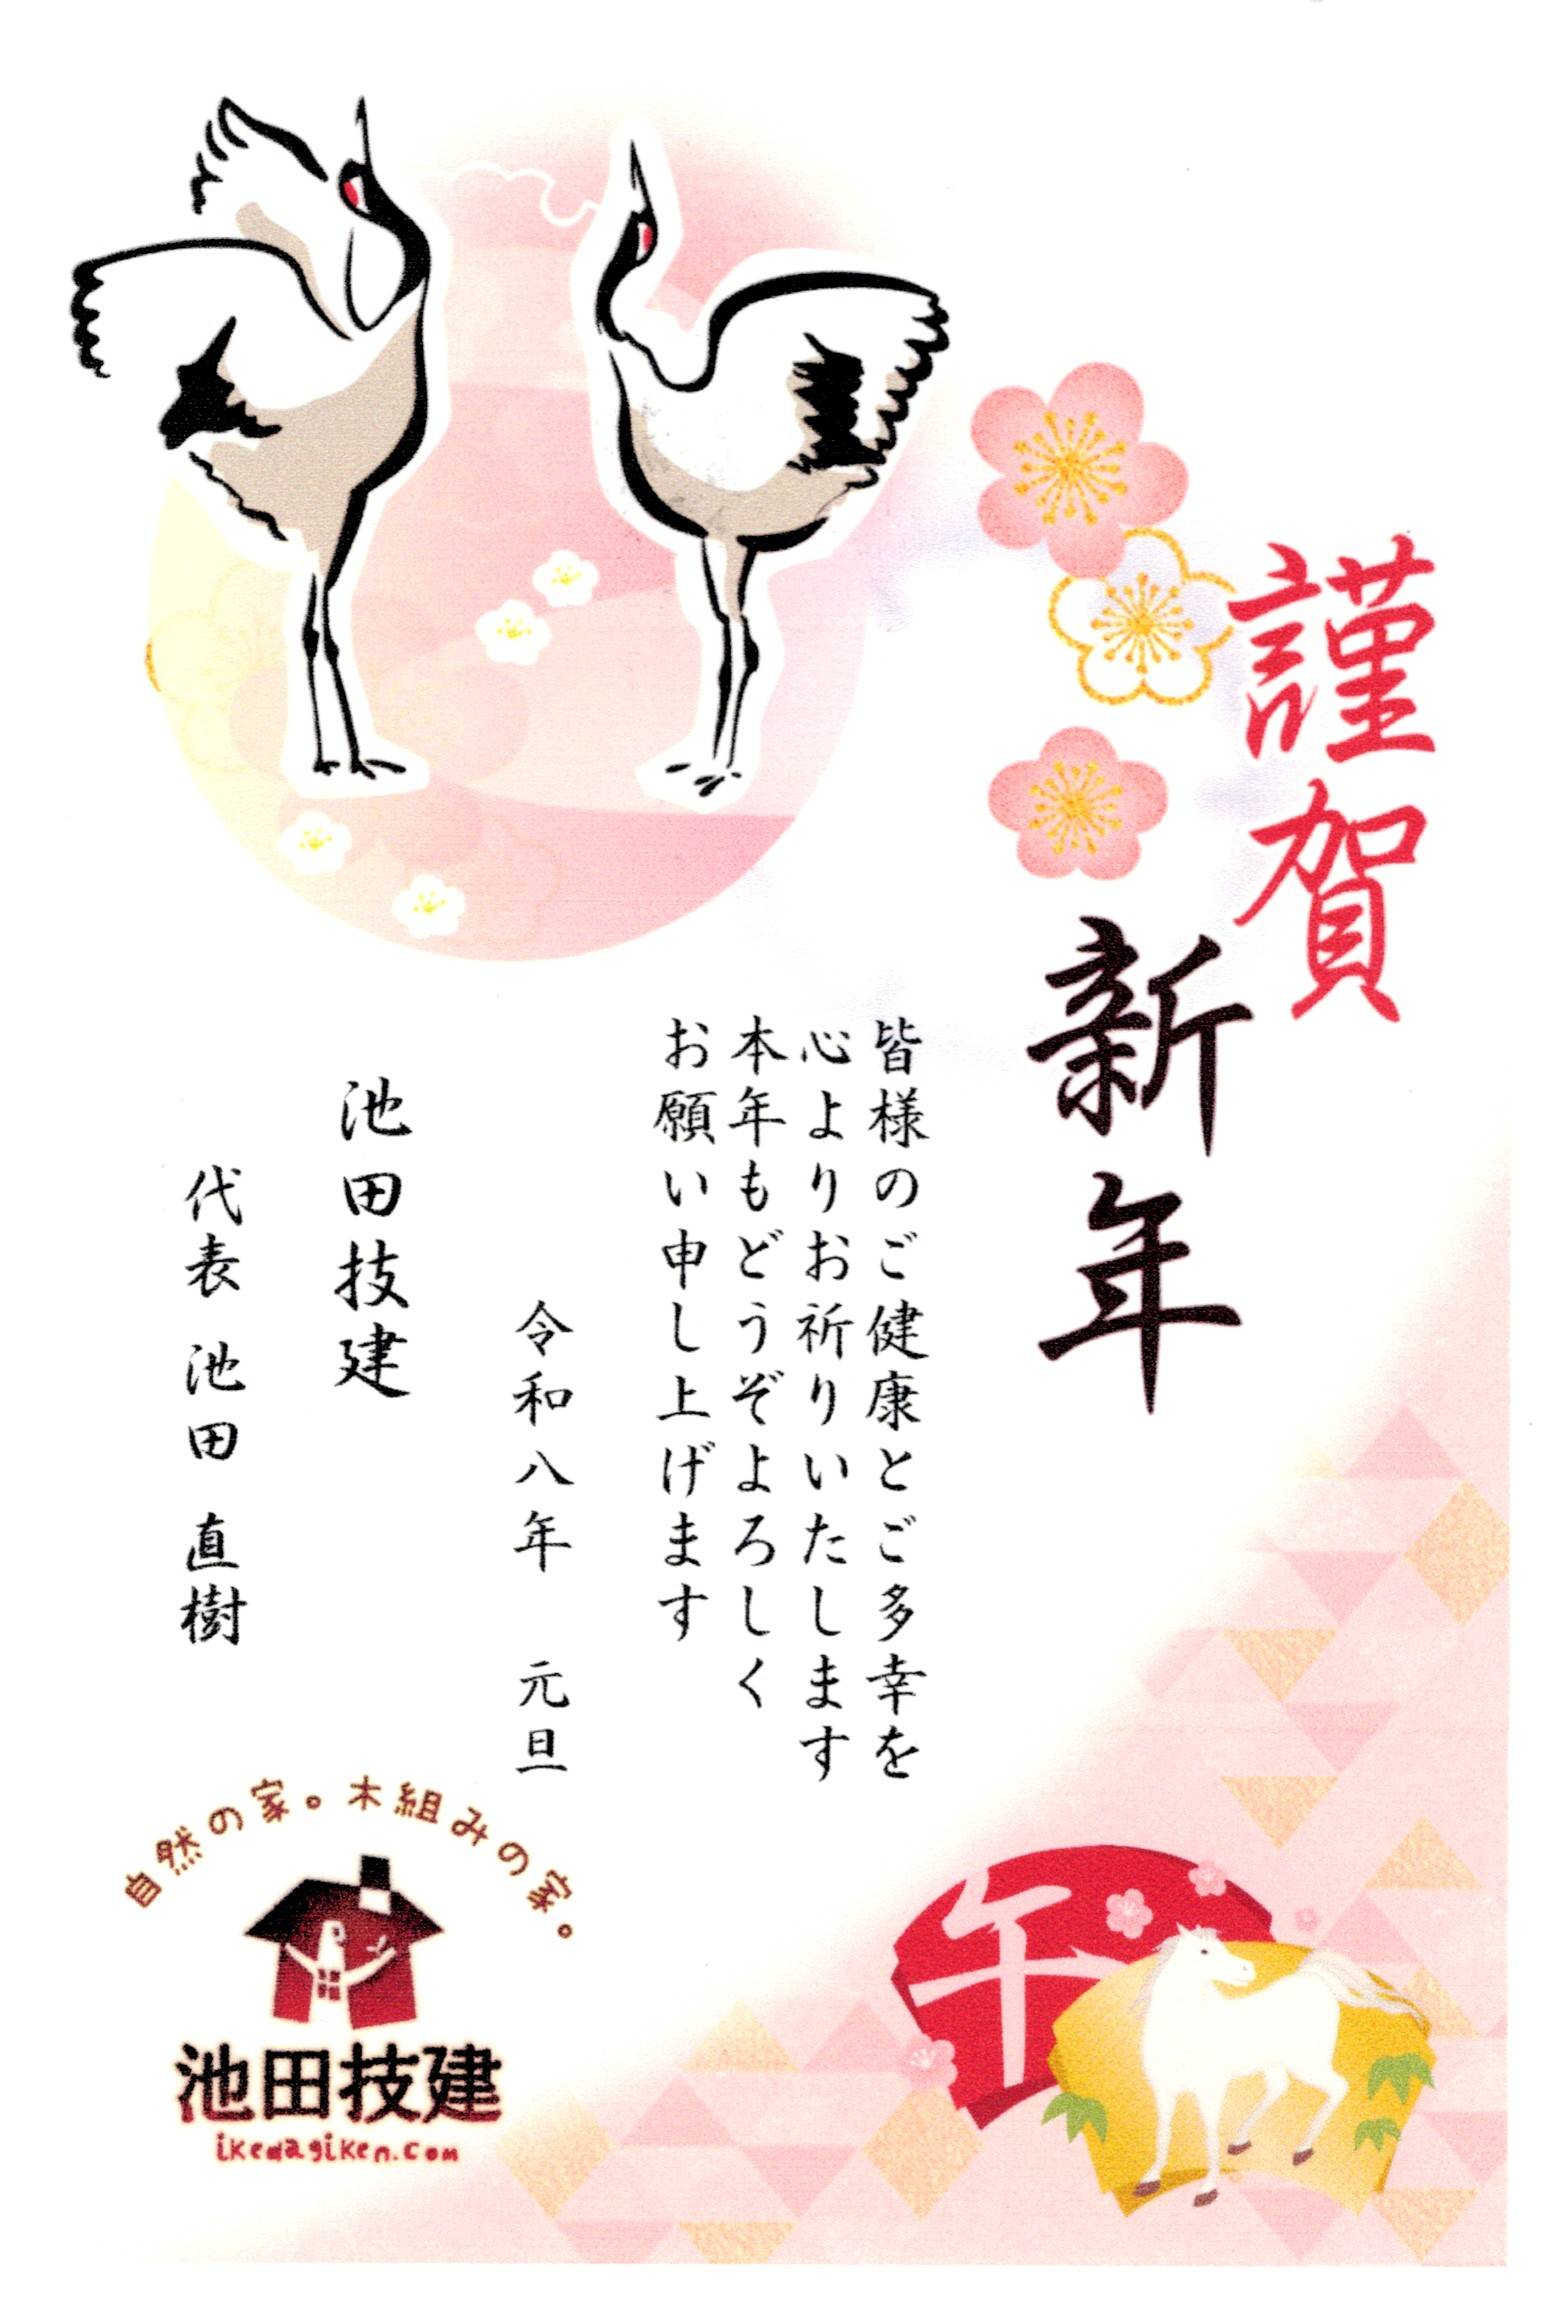 謹賀
新年
皆様のご健康とご多幸を
心よりお祈りいたします
本年もどうぞよろしく
お願い申し上げます
令和八年 元旦
池田技建
代表 池田 直樹
自然の家。木組みの家。
池田技建
ikedagiken.com
午